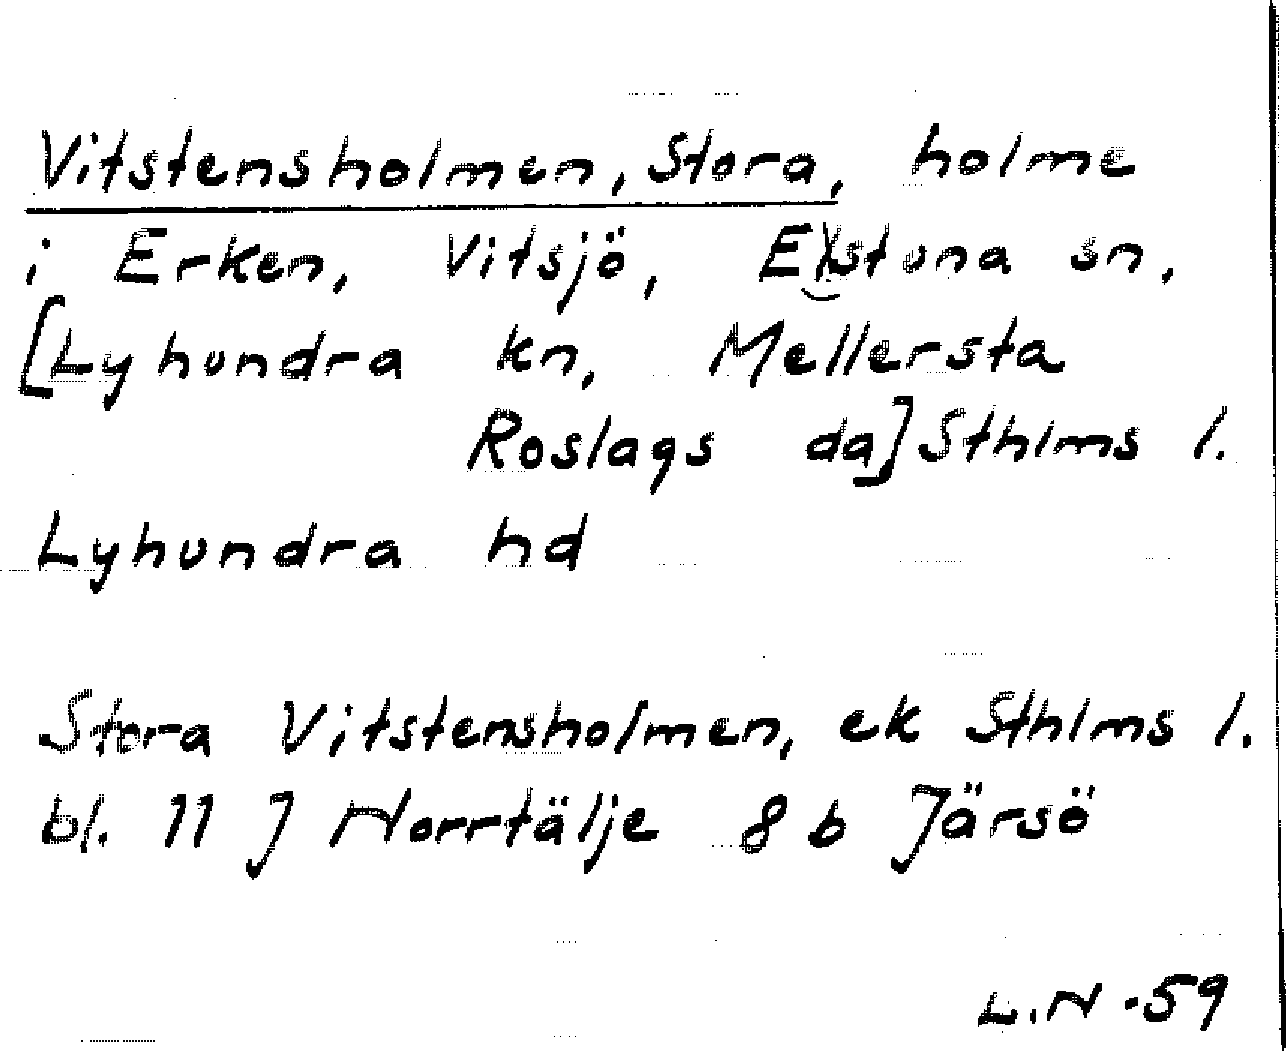 Vitstensholmen, Stora, holme
i Erken, Vitsjö, Estuna sn,
[Lyhundra kn, Mellersta
Roslags da] Sthlms l.
Lyhundra hd
Stora Vitstensholmen, ek Sthlms l.
bl. 11 J Norrtälje 8 b Järsö
L.N -59